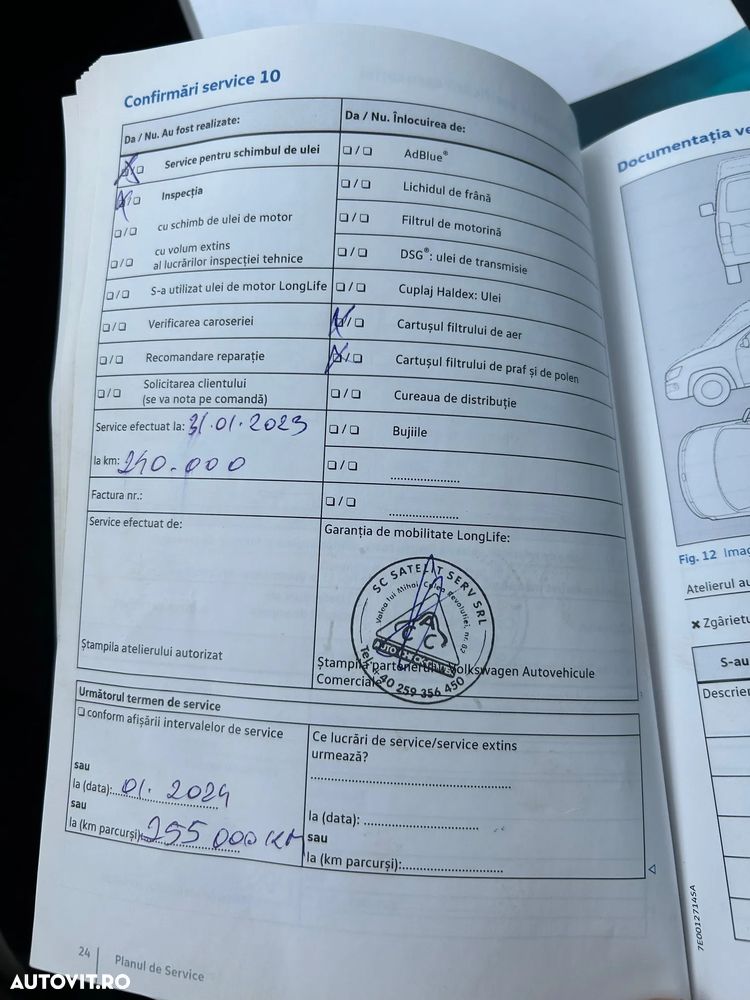 Confirmări service 10
Da / Nu. Au fost realizate:
Da / Nu. Înlocuirea de:
❏/❏ Service pentru schimbul de ulei
❏/❏ AdBlue®
❏/❏ Inspecția
❏/❏ Lichidul de frână
❏/❏ cu schimb de ulei de motor
❏/❏ Filtrul de motorină
❏/❏ cu volum extins
al lucrărilor inspecției tehnice
❏/❏ DSG®: ulei de transmisie
❏/❏ S-a utilizat ulei de motor LongLife
❏/❏ Cuplaj Haldex: Ulei
❏/❏ Verificarea caroseriei
❏/❏ Cartușul filtrului de aer
❏/❏ Recomandare reparație
❏/❏ Cartușul filtrului de praf și de polen
❏/❏ Solicitarea clientului
(se va nota pe comandă)
❏/❏ Cureaua de distribuție
Service efectuat la: 31.01.2023
❏/❏ Bujiile
la km: 240.000
❏/❏ ......................
Factura nr.:
❏/❏ ......................
Service efectuat de:
Garanția de mobilitate LongLife:
SC SATELIT SERV SRL
Valea lui Mihai, Calea Revoluției, nr. 82
Tel. +40 259 356 450
Ștampila atelierului autorizat
Ștampila partenerului Volkswagen Autovehicule
Comerciale
Următorul termen de service
❏ conform afișării intervalelor de service
Ce lucrări de service/service extins
urmează?
sau
la (data): 01. 2024
la (data):
sau
sau
la (km parcurși): 255 000 KM
la (km parcurși):
24 Planul de Service
Documentația ve
Fig. 12 Imag
Atelierul au
✘ Zgârietu
S-au
Descrier
7E0012714SA
AUTOVIT.RO